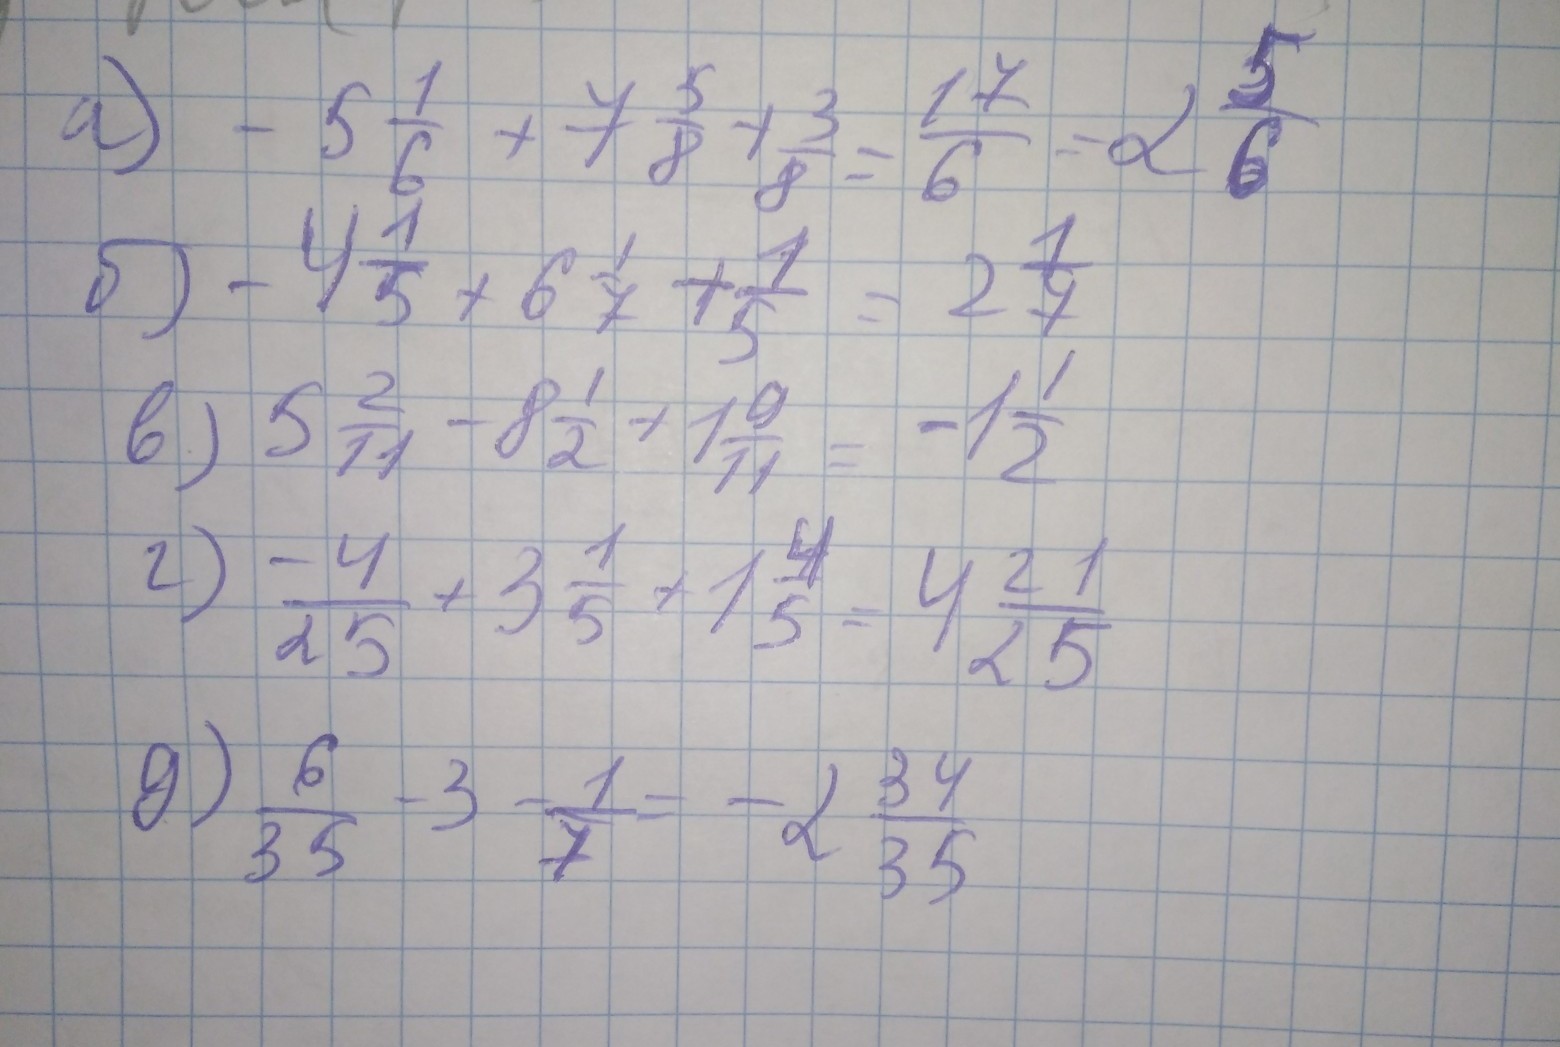 а) - 5 1/6 + 7 5/8 + 3/8 = 17/6 = 2 5/6
б) - 4 1/5 + 6 1/7 + 1/5 = 2 1/7
в) 5 2/11 - 8 1/2 + 1 9/11 = -1 1/2
г) -4/25 + 3 1/5 + 1 4/5 = 4 21/25
д) 6/35 - 3 - 1/7 = -2 34/35